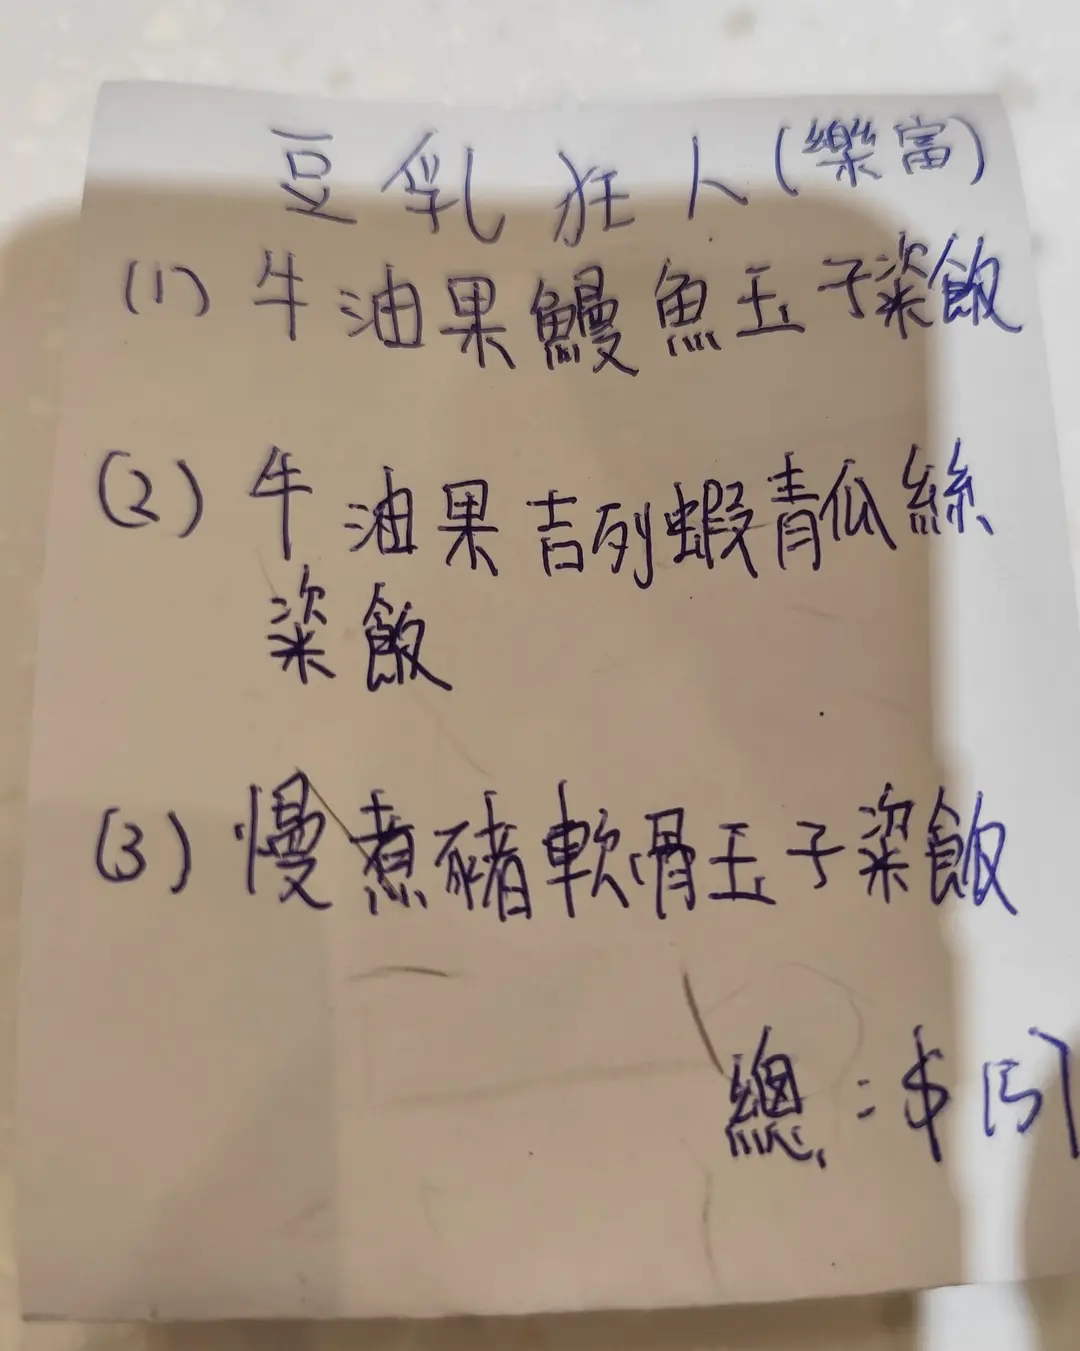 豆乳狂人(樂富)
(1) 牛油果鰻魚玉子粢飯
(2) 牛油果吉列蝦青瓜絲
粢飯
(3) 慢煮豬軟骨玉子粢飯
總:$151